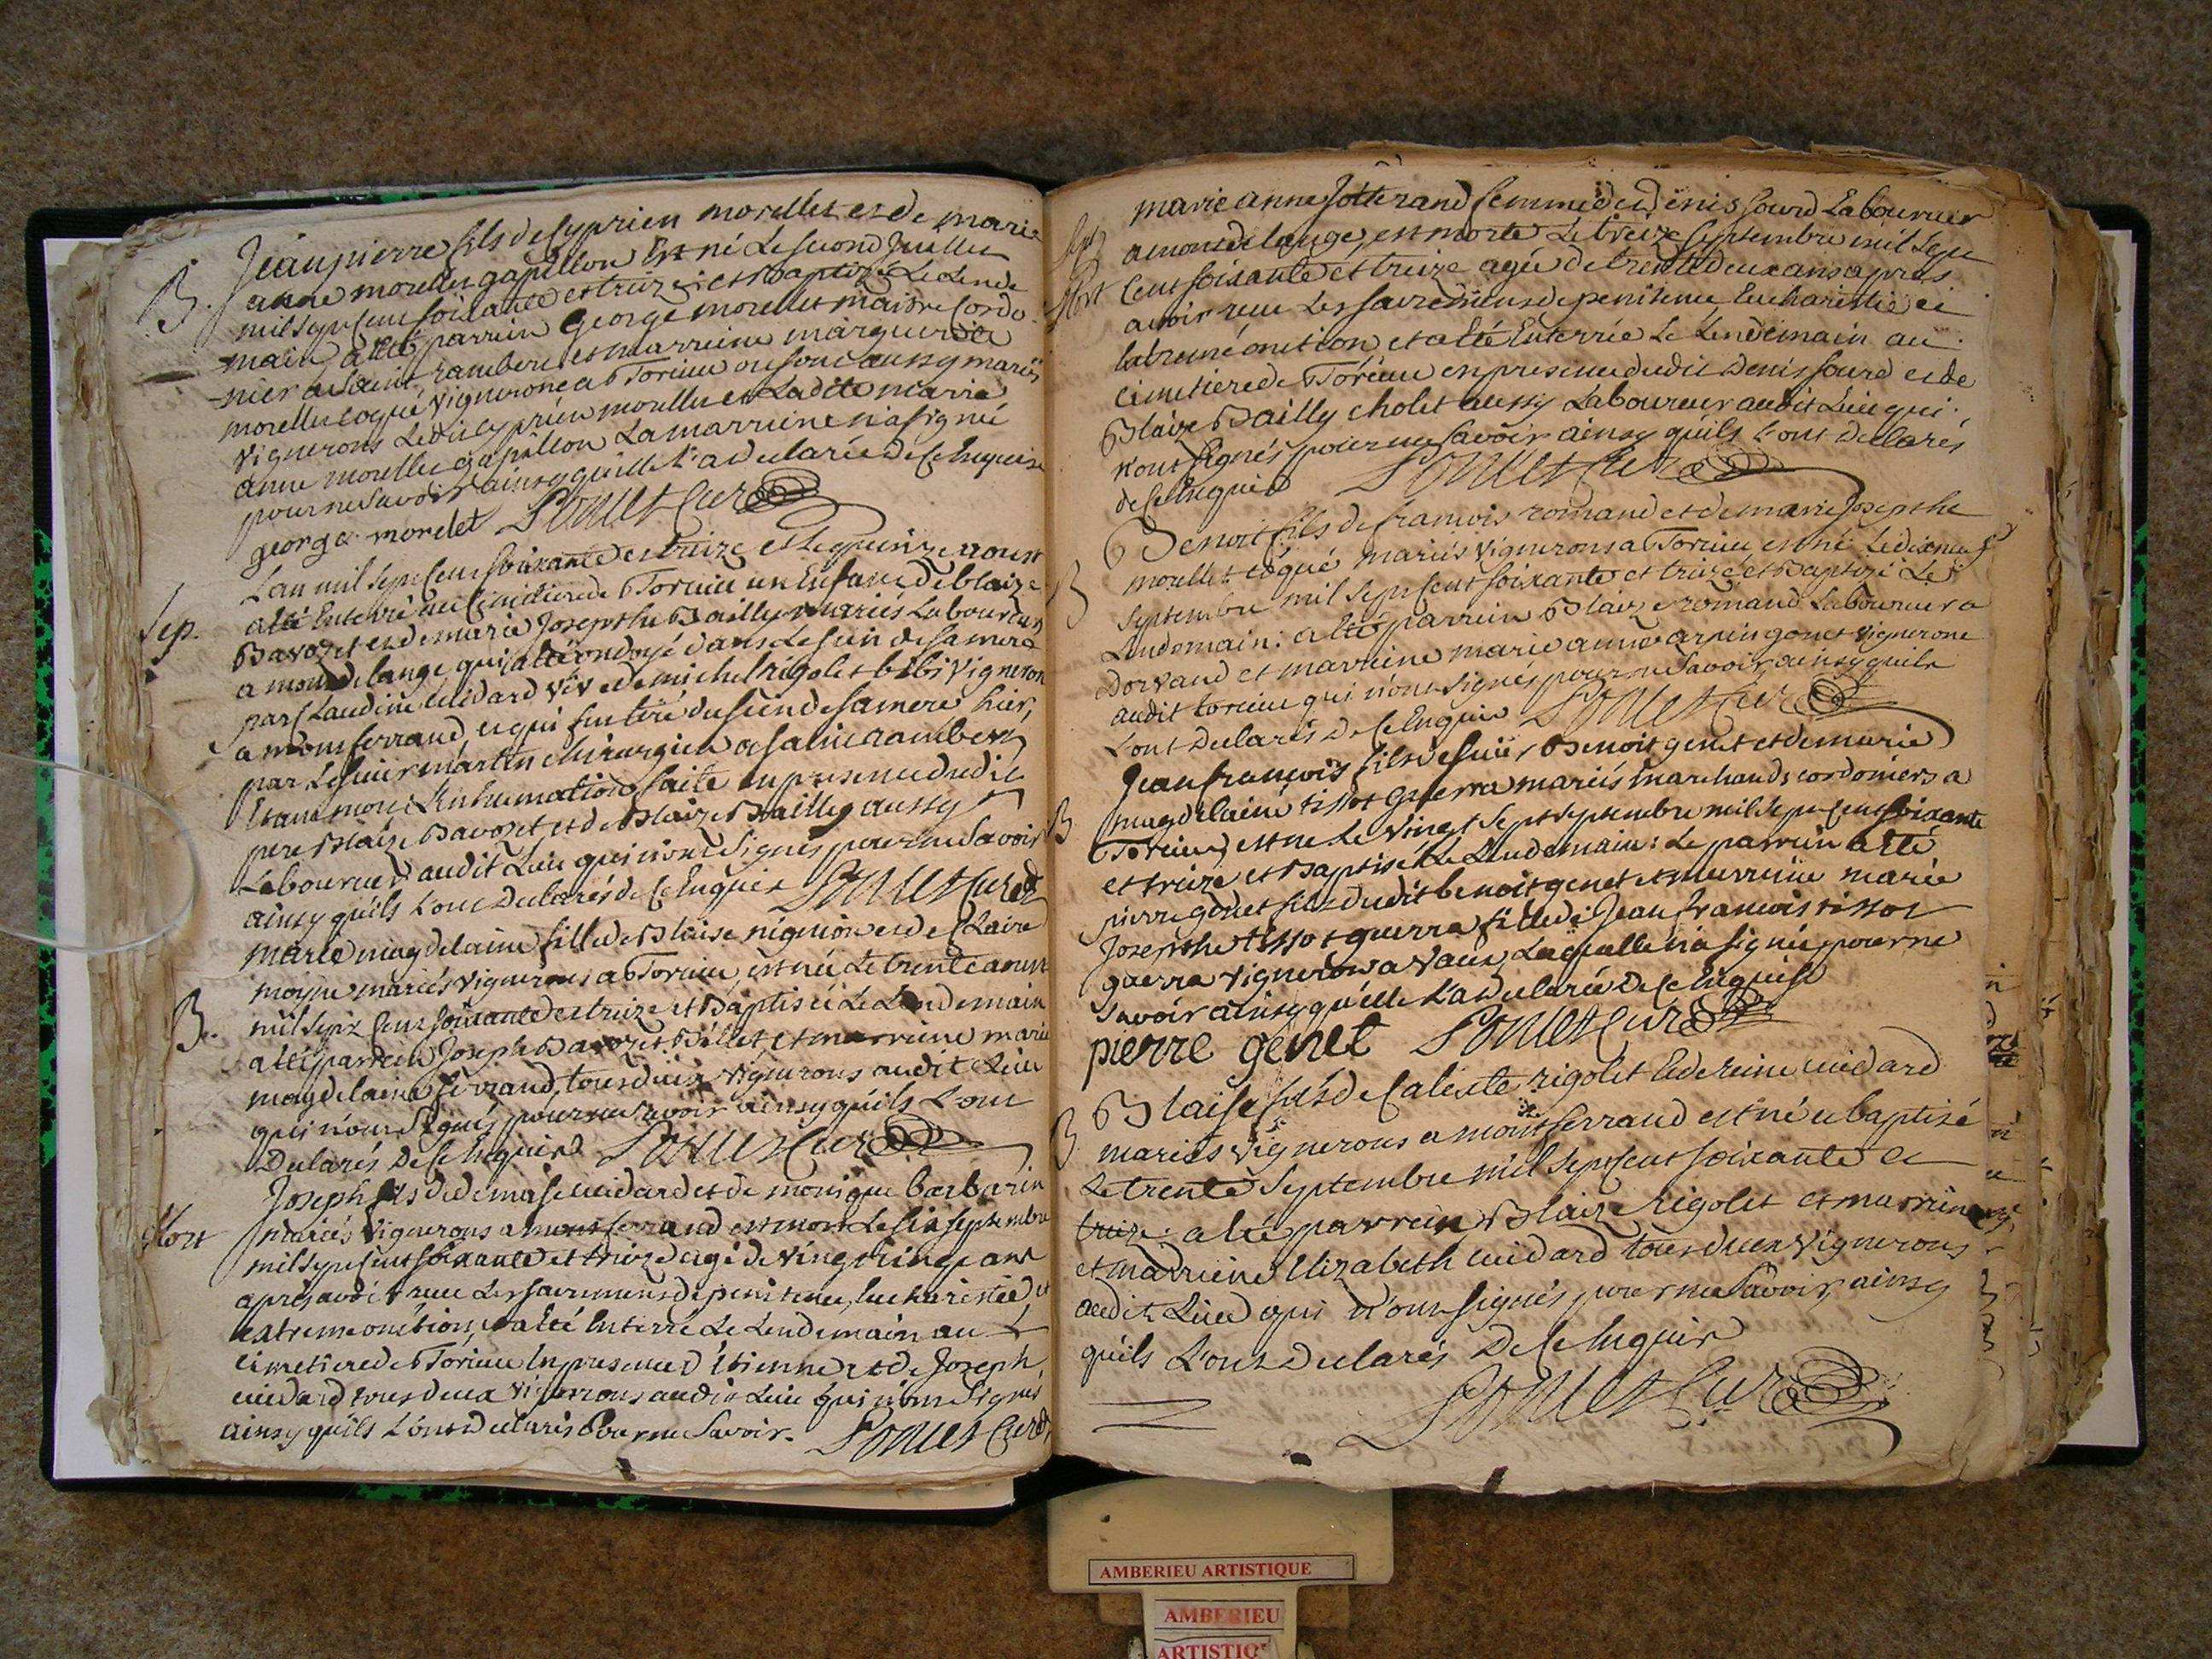 B. Jean pierre fils de Cyprien morellet et de marie
anne morellet gapillon Est né Le second Juillet
mil sept cent soixante et treize et Baptizé Le Lende
main a été parrein George morellet maitre Cordo
nier a Saint rambert et marreine marguerite
morellet coqué vignerone a Torcieu ou sont aussy mariés
vignerons Ledit cyprien morellet et Ladite marie
anne morellet gapillon La marreine n'a signé
pour ne savoir ainsy qu'elle L'a declarée de ce Enquise
george morelet Sonnet Curé
Sep. L'an mil sept cent soixante et treize et Le quinze aoust
a été Enterré au Cimetiere de Torcieu un Enfant de blaize
Bavozet et de marie Josephthe Bailly mariés Laboureurs
a mont de lange, qui a été ondoyé dans Le sein de sa mere
par Claudine cuidard vve de michel rigolet bibi vigneron
a montferrand et qui fut tiré du sein de sa mere hier,
par Le sieur martin chirurgien a saint rambert
Etant mort. L'inhumation faite en presence dudit
pere Blaize Bavozet et de Blaize Bailly aussy
Laboureur audit Lieu qui n'ont signés pour ne savoir
ainsy quils L'ont declarés de ce Enquis Sonnet Curé
marie magdelaine fille de Blaise nignion et de Claire
moyne mariés vignerons a Torcieu est née Le trente aoust
B. mil sept cent soixante et treize et Baptisée Le Lendemain
a été parrein Joseph Bavozet Billet, et marreine marie
magdelaine ferrand, tous deux vignerons audit Lieu
qui n'ont signés pour ne savoir ainsy quils L'ont
Declarés De ce Enquis Sonnet Curé
Joseph fils de demas cuidard et de monique barbarin
Mort mariés vignerons a montferrand est mort Le six septembre
mil sept cent soixante et treize agé de vingt cinq ans
apres avoir receu Les sacremens de penitence, Eucharistie et
extreme onction, et a été Enterré Le Lendemain au
cimetiere de Torcieu En presence d'Etienne et de Joseph
cuidard tous deux vignerons audit Lieu qui n'ont signés
ainsy quils L'ont declarés Pour ne savoir. Sonnet Curé
marie anne Jotterand femme de denis sourd Laboureur
Sep a mont de lange, est morte Le treize septembre mil sept
Mort cent soixante et treize agée de trente deux ans apres
avoir receu Les sacremens de penitence Eucharistie et
Extreme onction et a été Enterrée Le Lendemain au
cimetiere de Torcieu en presence dudit Denis sourd et de
Blaize Bailly cholet aussy Laboureur audit Lieu qui
n'ont signés pour ne savoir ainsy quils L'ont declarés
de ce Enquis Sonnet Curé
Benoit fils de francois romand et de marie Josephthe
B morellet coqué mariés vignerons a Torcieu est né Le dixneuf
septembre mil sept cent soixante et treize et Baptizé Le
Lendemain: a été parrein Blaize romand Laboureur a
Dorvand et marreine marie anne arpin gonet vignerone
audit torcieu qui n'ont signés pour ne savoir, ainsy quils
L'ont Declarés De ce Enquis Sonnet Curé
Jean francois fils de sieur Benoit genet et de marie
magdelaine tissot guerra mariés marchands cordoniers a
B Torcieu, est né Le vingt sept septembre mil sept cent soixante
et treize et Baptisé Le Lendemain: Le parrein a été
pierre genet fils dudit benoit genet et marreine marie
Josephthe tissot guerra fille de Jean francois tissot
guerra vigneron a vaux, Laquelle n'a signée pour ne
savoir ainsy qu'elle L'a declarée De ce Enquise
pierre genet Sonnet Curé
Blaise fils de Calixte rigolet et de reine cuidard
B mariés vignerons a montferrand est né et baptisé
Le trente septembre mil sept cent soixante et
treize: a été parrein Blaize rigolet et marreine
et marreine Elizabeth cuidard tous deux vignerons
audit Lieu qui n'ont signés pour ne savoir, ainsy
quils L'ont declarés De ce Enquis
Sonnet Curé
AMBERIEU ARTISTIQUE
AMBERIEU
ARTISTIQ